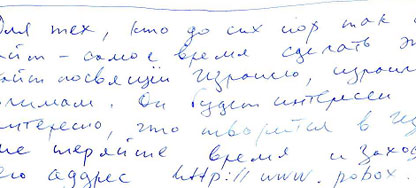 для тех, кто до сих пор так и
айт - самое время сделать э
айт посвящён Израилю, израил
лимам. Он будет интересен
нтересно, что творится в Из
не теряйте время и захо
его аддрес http://www.pobox.